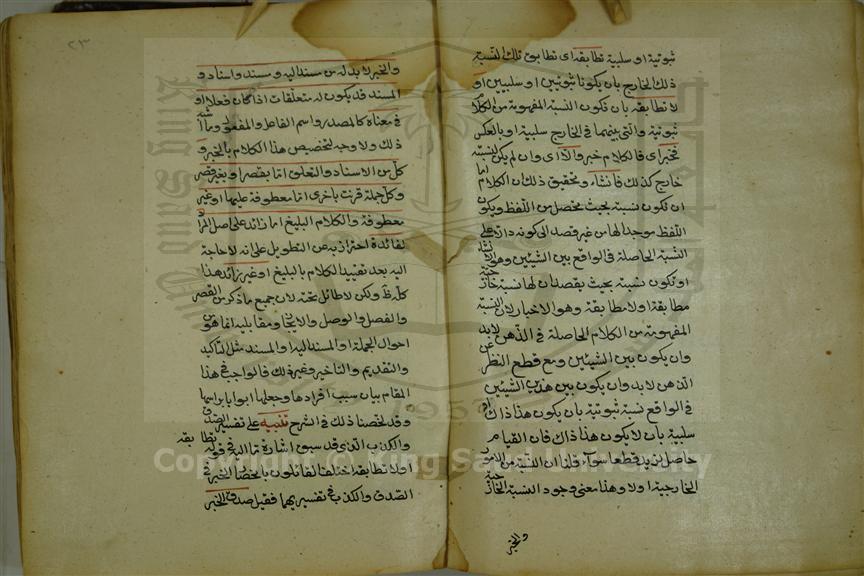 ثبوتية او سلبية تطابقه اى تطابق تلك النسبة
ذلك الخارج بان يكونا ثبوتيين او سلبيين او
لا تطابقه بان تكون النسبة المفهومة من الكلام
ثبوتية والتى بينهما فى الخارج سلبية او بالعكس
فخبر اى فالكلام خبر والا اى وان لم يكن لنسبته
خارج كذلك فانشاء وتحقيق ذلك ان الكلام اما
ان تكون نسبة بحيث تحصل من اللفظ ويكون
اللفظ موجدا لها من غير قصد الى كونه دالا على
النسبة الحاصلة فى الواقع بين الشيئين وهو الانشاء
او تكون نسبة بحيث يقصد ان لها نسبة خارجية
مطابقة او لا مطابقة وهو الاخبار لان النسبة
المفهومة من الكلام الحاصلة فى الذهن لا بد
وان يكون بين الشيئين ومع قطع النظر عن
الذهن لا بد وان يكون بين هذين الشيئين
فى الواقع نسبة ثبوتية بان يكون هذا ذاك او
سلبية بان لا يكون هذا ذاك فان القيام
حاصل لزيد قطعا سواء قلنا ان النسبة من الامور
الخارجية او لا وهذا معنى وجود النسبة الخارجية
والخبر
٢٣
والخبر لا بد له من مسند اليه ومسند واسناد و
المسند قد يكون له متعلقات اذا كان فعلا او
فى معناه كالمصدر واسم الفاعل والمفعول وما اشبه
ذلك ولا وجه لتخصيص هذا الكلام بالخبر و
كل من الاسناد والتعلق اما بقصر او بغير قصر
وكل جملة قرنت باخرى اما معطوفة عليها او غير
معطوفة والكلام البليغ اما زائد على اصل المراد
لفائدة احترز به عن التطويل على انه لا حاجة
اليه بعد تقييد الكلام بالبليغ او غير زائد هذا
كله ظ ولكن لا طائل تحته لان جميع ما ذكر من القصر
والفصل والوصل والايجاز ومقابليه انما هو من
احوال الجملة او المسند اليه او المسند مثل التأكيد
والتقديم والتاخير وغير ذلك فالواجب فى هذا
المقام بيان سبب افرادها وجعلها ابوابا براسها
وقد لخصنا ذلك فى الشرح تنبيه على تفسير الصدق
والكذب الذى قد سبق اشارة ما اليه فى قوله تطابقه
او لا تطابقه اختلف القائلون بانحصار الخبر فى
الصدق والكذب فى تفسيرهما فقيل صدق الخبر
Copyright © King Saud University
1957